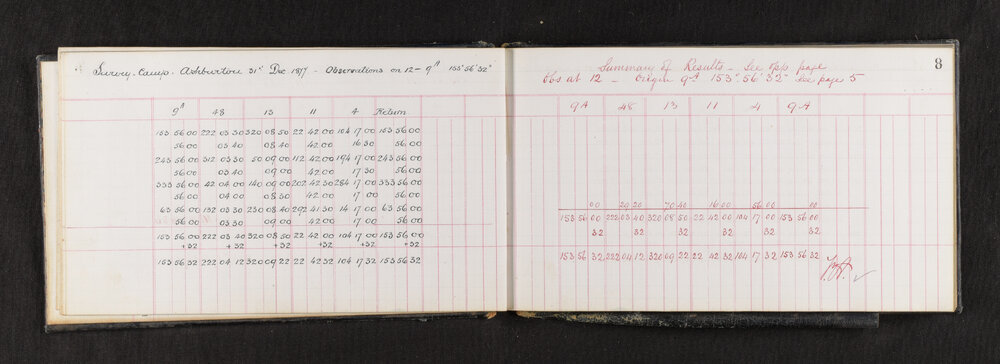 Survey Camp - Ashburton 31st Dec 1877 - Observations on 12 - 9A 153°56'32"
9A 48 13 11 4 Return
153 56 00 222 03 30 320 08 50 22 42 00 104 17 00 153 56 00
56 00 03 40 08 40 42 00 16 30 56 00
243 56 00 312 03 30 50 09 00 112 42 00 194 17 00 243 56 00
56 00 03 40 09 00 42 00 17 30 56 00
333 56 00 42 04 00 140 09 00 202 42 30 284 17 00 333 56 00
56 00 04 00 08 30 42 00 17 00 56 00
63 56 00 132 03 30 230 08 40 292 41 30 14 17 00 63 56 00
56 00 03 30 09 00 42 00 17 00 56 00
153 56 00 222 03 40 320 08 50 22 42 00 104 17 00 153 56 00
+32 +32 +32 +32 +32 +32
153 56 32 222 04 12 320 09 22 22 42 32 104 17 32 153 56 32
8
Summary of Results - See opp page
Obs at 12 - Origin 9A 153°56'32" See page 5
9A 48 13 11 4 9A
00 29 20 70 40 16 00 56 00 00
153 56 00 222 03 40 320 08 50 22 42 00 104 17 00 153 56 00
32 32 32 32 32 32
153 56 32 222 04 12 320 09 22 22 42 32 104 17 32 153 56 32